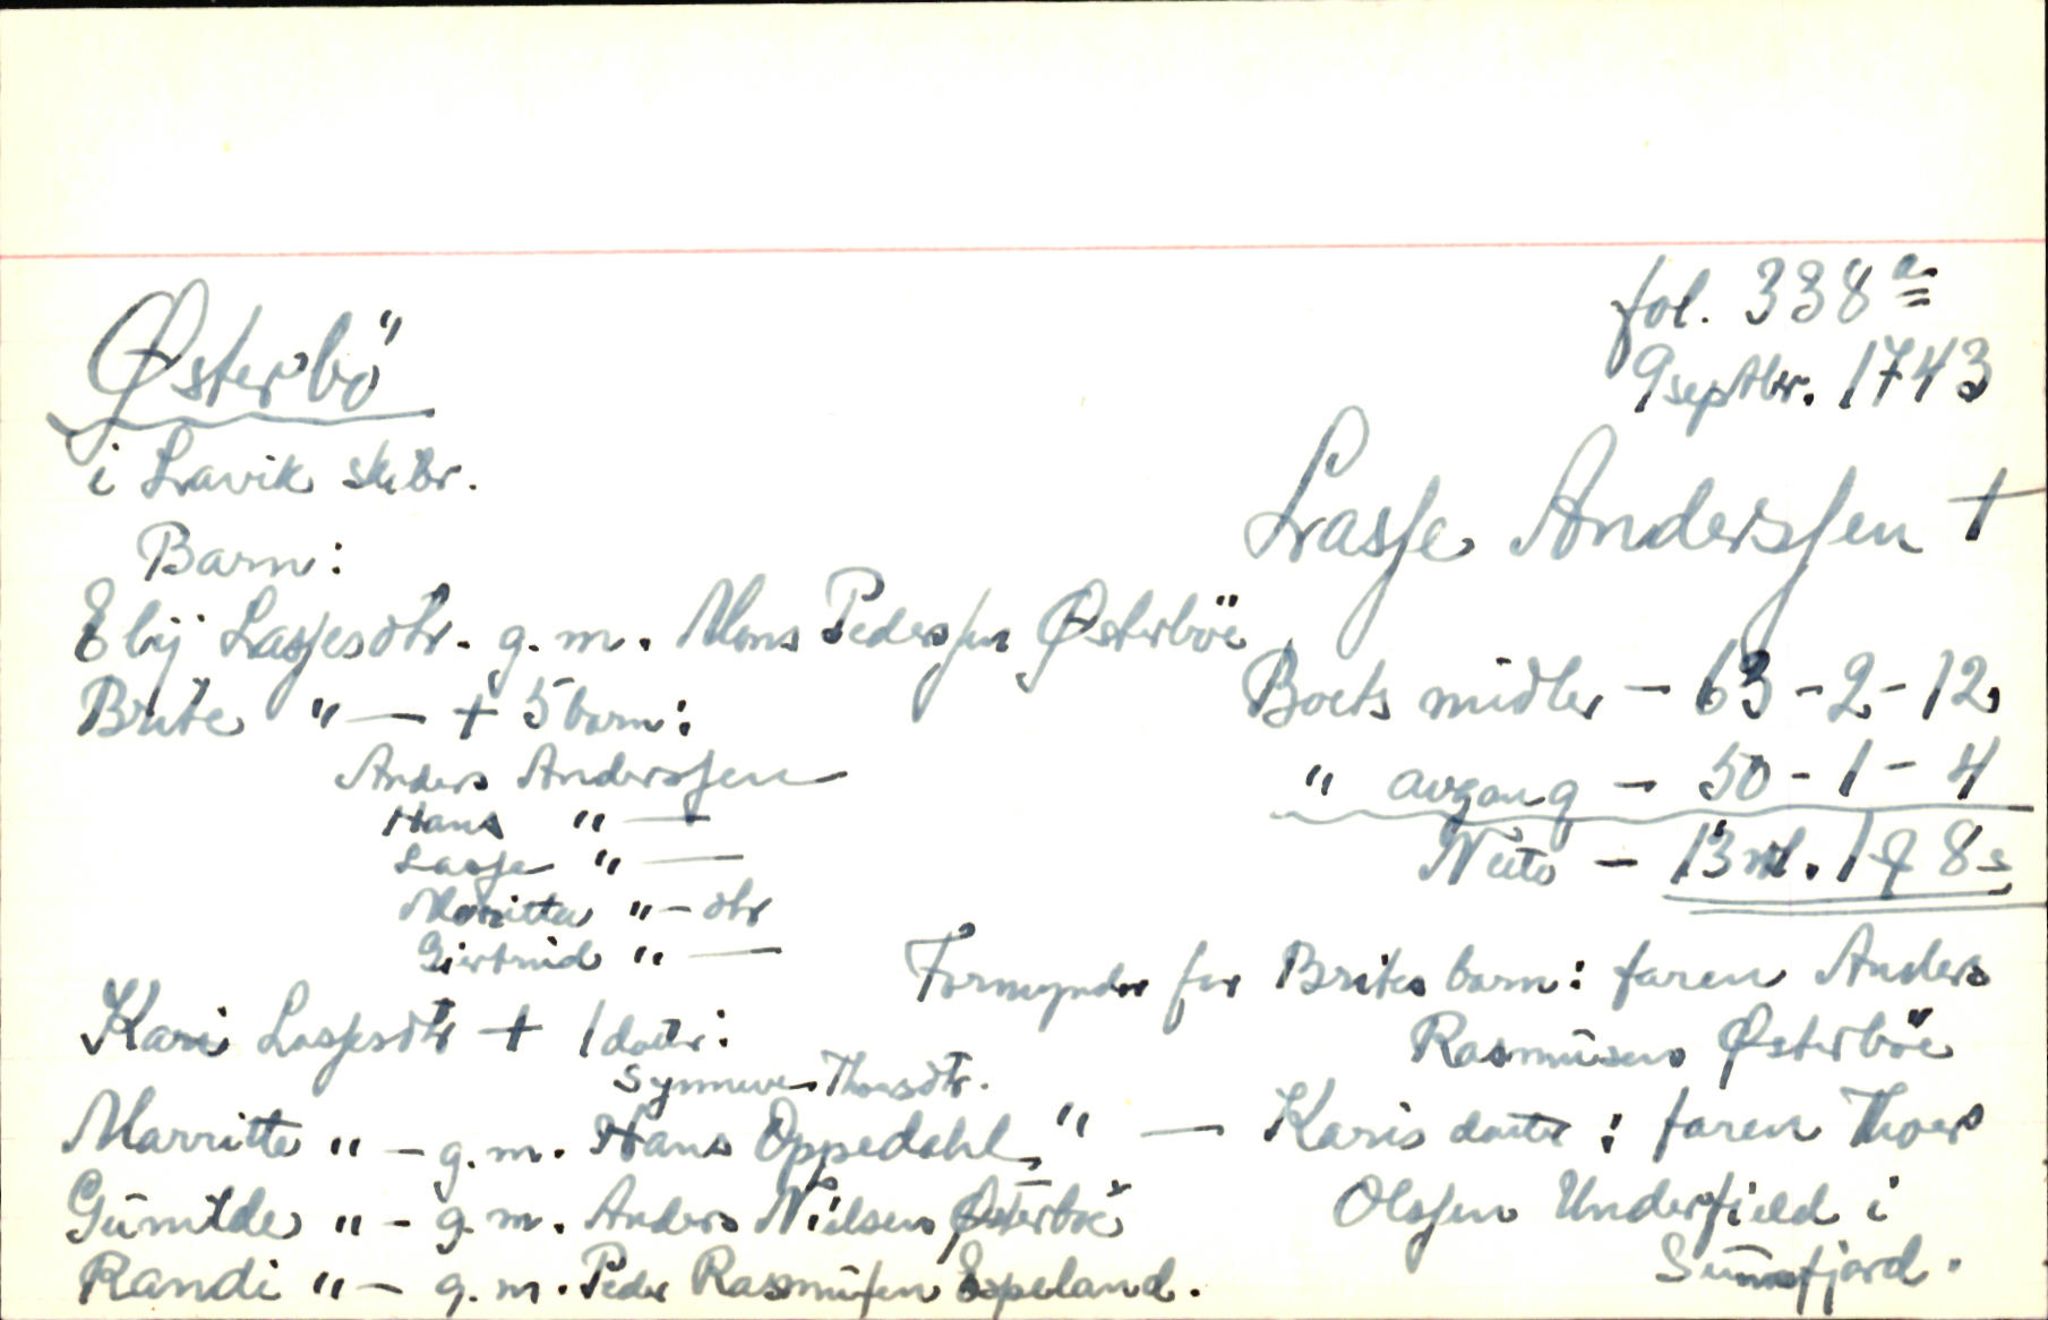 fol. 338 a
9 septbr. 1743
Østerbö
i Lavik skbr.
Lasse Anderssen +
Barn:
Elij Lassesdtr. g. m. Mons Pederssen Østerböe
Brite " — + 5 barn:
Anders Anderssen
Hans " —
Lasse " —
Marritte " — dtr
Giertrud " —
Kari Lassesdtr + 1 dattr:
Synneve Thorsdtr.
Marritte " — g. m. Hans Oppedahl
Gunilde " — g. m. Anders Nielsen Østerböe
Randi " — g. m. Peder Rasmussen Espeland.
Boets midler — 63 - 2 - 12
" avgang — 50 - 1 - 4
Netto — 13 rd. 1 ₰ 8 s
Formynder for Brites barn: faren Anders
Rasmusen Østerböe
" — Karis dattr: faren Thoer
Olssen Underfield i
Sunnfjord.